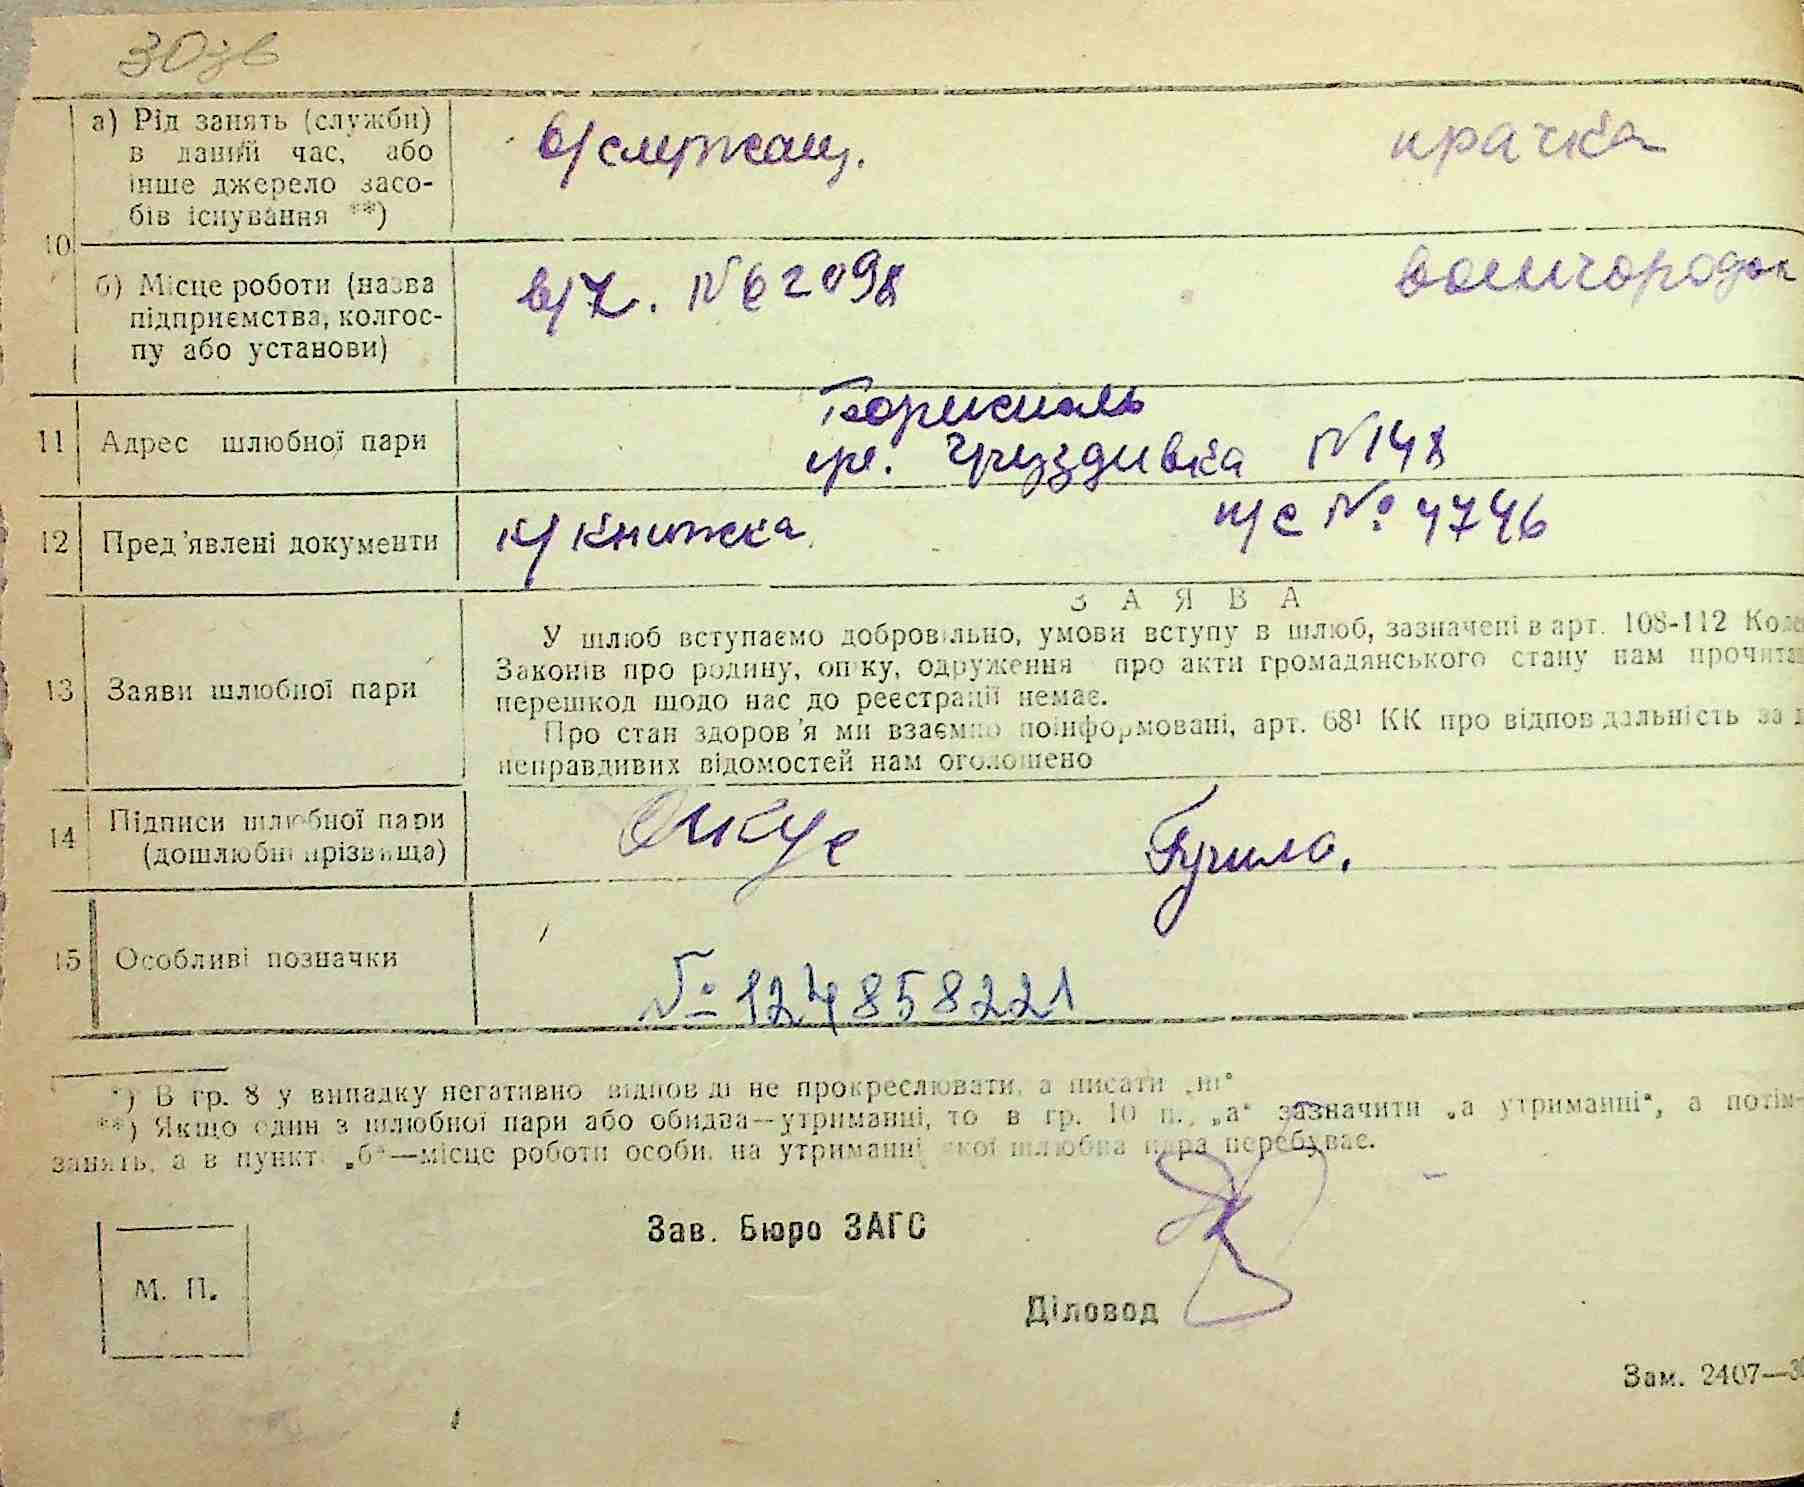 30зв
а) Рід занять (служби) в/служащ. прачка
в даний час, або
інше джерело засо-
бів існування **)
10
б) Місце роботи (назва в/ч. № 62098 воєнгородок
підприємства, колгос-
пу або установи)
Бориспиль
11 Адрес шлюбної пари ул. Груздивка № 148
12 Пред'явлені документи к/книжка п/с № 4746
З А Я В А
У шлюб вступаємо добровільно, умови вступу в шлюб, зазначені в арт. 108-112
Законів про родину, опіку, одруження про акти громадянського стану нам
13 Заяви шлюбної пари перешкод щодо нас до реєстрації немає.
Про стан здоров'я ми взаємно поінформовані, арт. 68¹ КК про відповідальність за
неправдивих відомостей нам оголошено
14 Підписи шлюбної пари
(дошлюбні прізвища)
15 Особливі позначки № 124858221
*) В гр. 8 у випадку негативно відповіді не прокреслювати, а писати „ні“
**) Якщо один з шлюбної пари або обидва—утриманні, то в гр. 10 п. „а“ зазначити „а утриманні“, а потім—
занять, а в пункті „б“—місце роботи особи, на утриманні якої шлюбна пара перебуває.
Зав. Бюро ЗАГС
М. П.
Діловод
Зам. 2407—